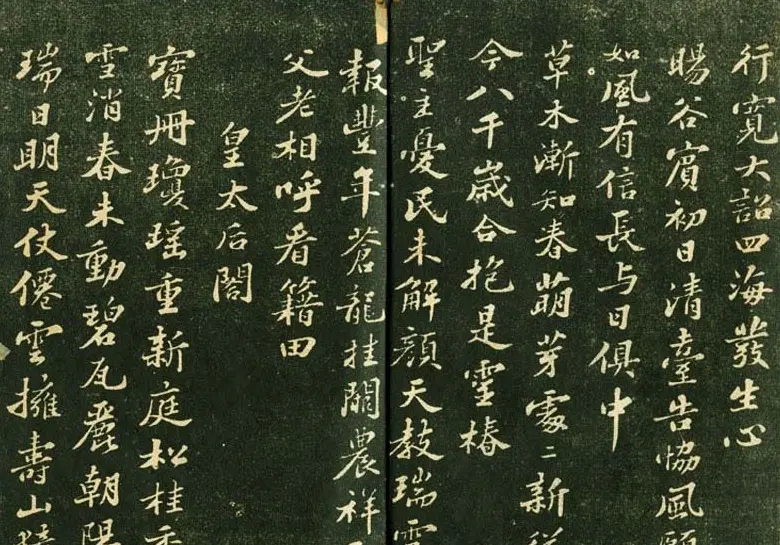 行寬大詔四海發生心
暘谷賓初日清臺告協風願
如風有信長与日俱中
草木漸知春萌芽處〻新從
今八千歲合抱是靈椿
聖主憂民未解顏天教瑞雪
報豐年蒼龍挂闕農祥
父老相呼看籍田
皇太后閤
寶册瓊瑤重新庭松桂香
雪消春未動碧瓦麗朝陽
瑞日明天仗僊雲擁壽山